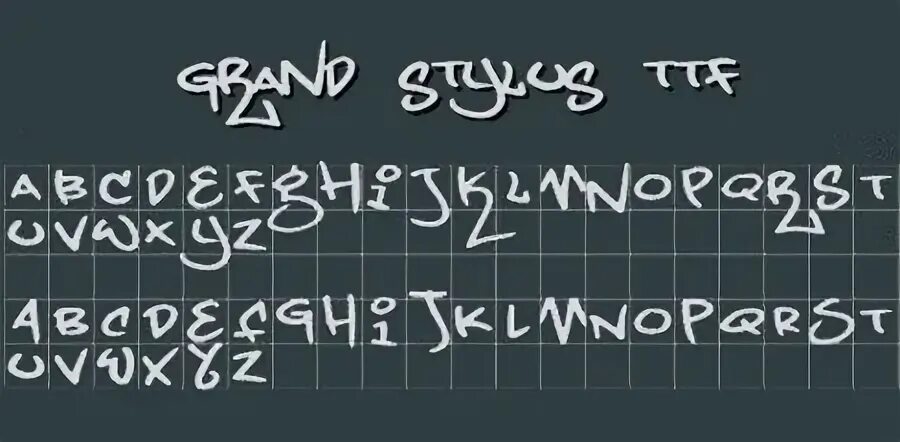 GRAND STYLUS TTF
A B C D E F g H i J K L M N O P Q R S T
U V W X Y Z
A B C D E F G H i J K L M N O P Q R S T
U V W X Y Z